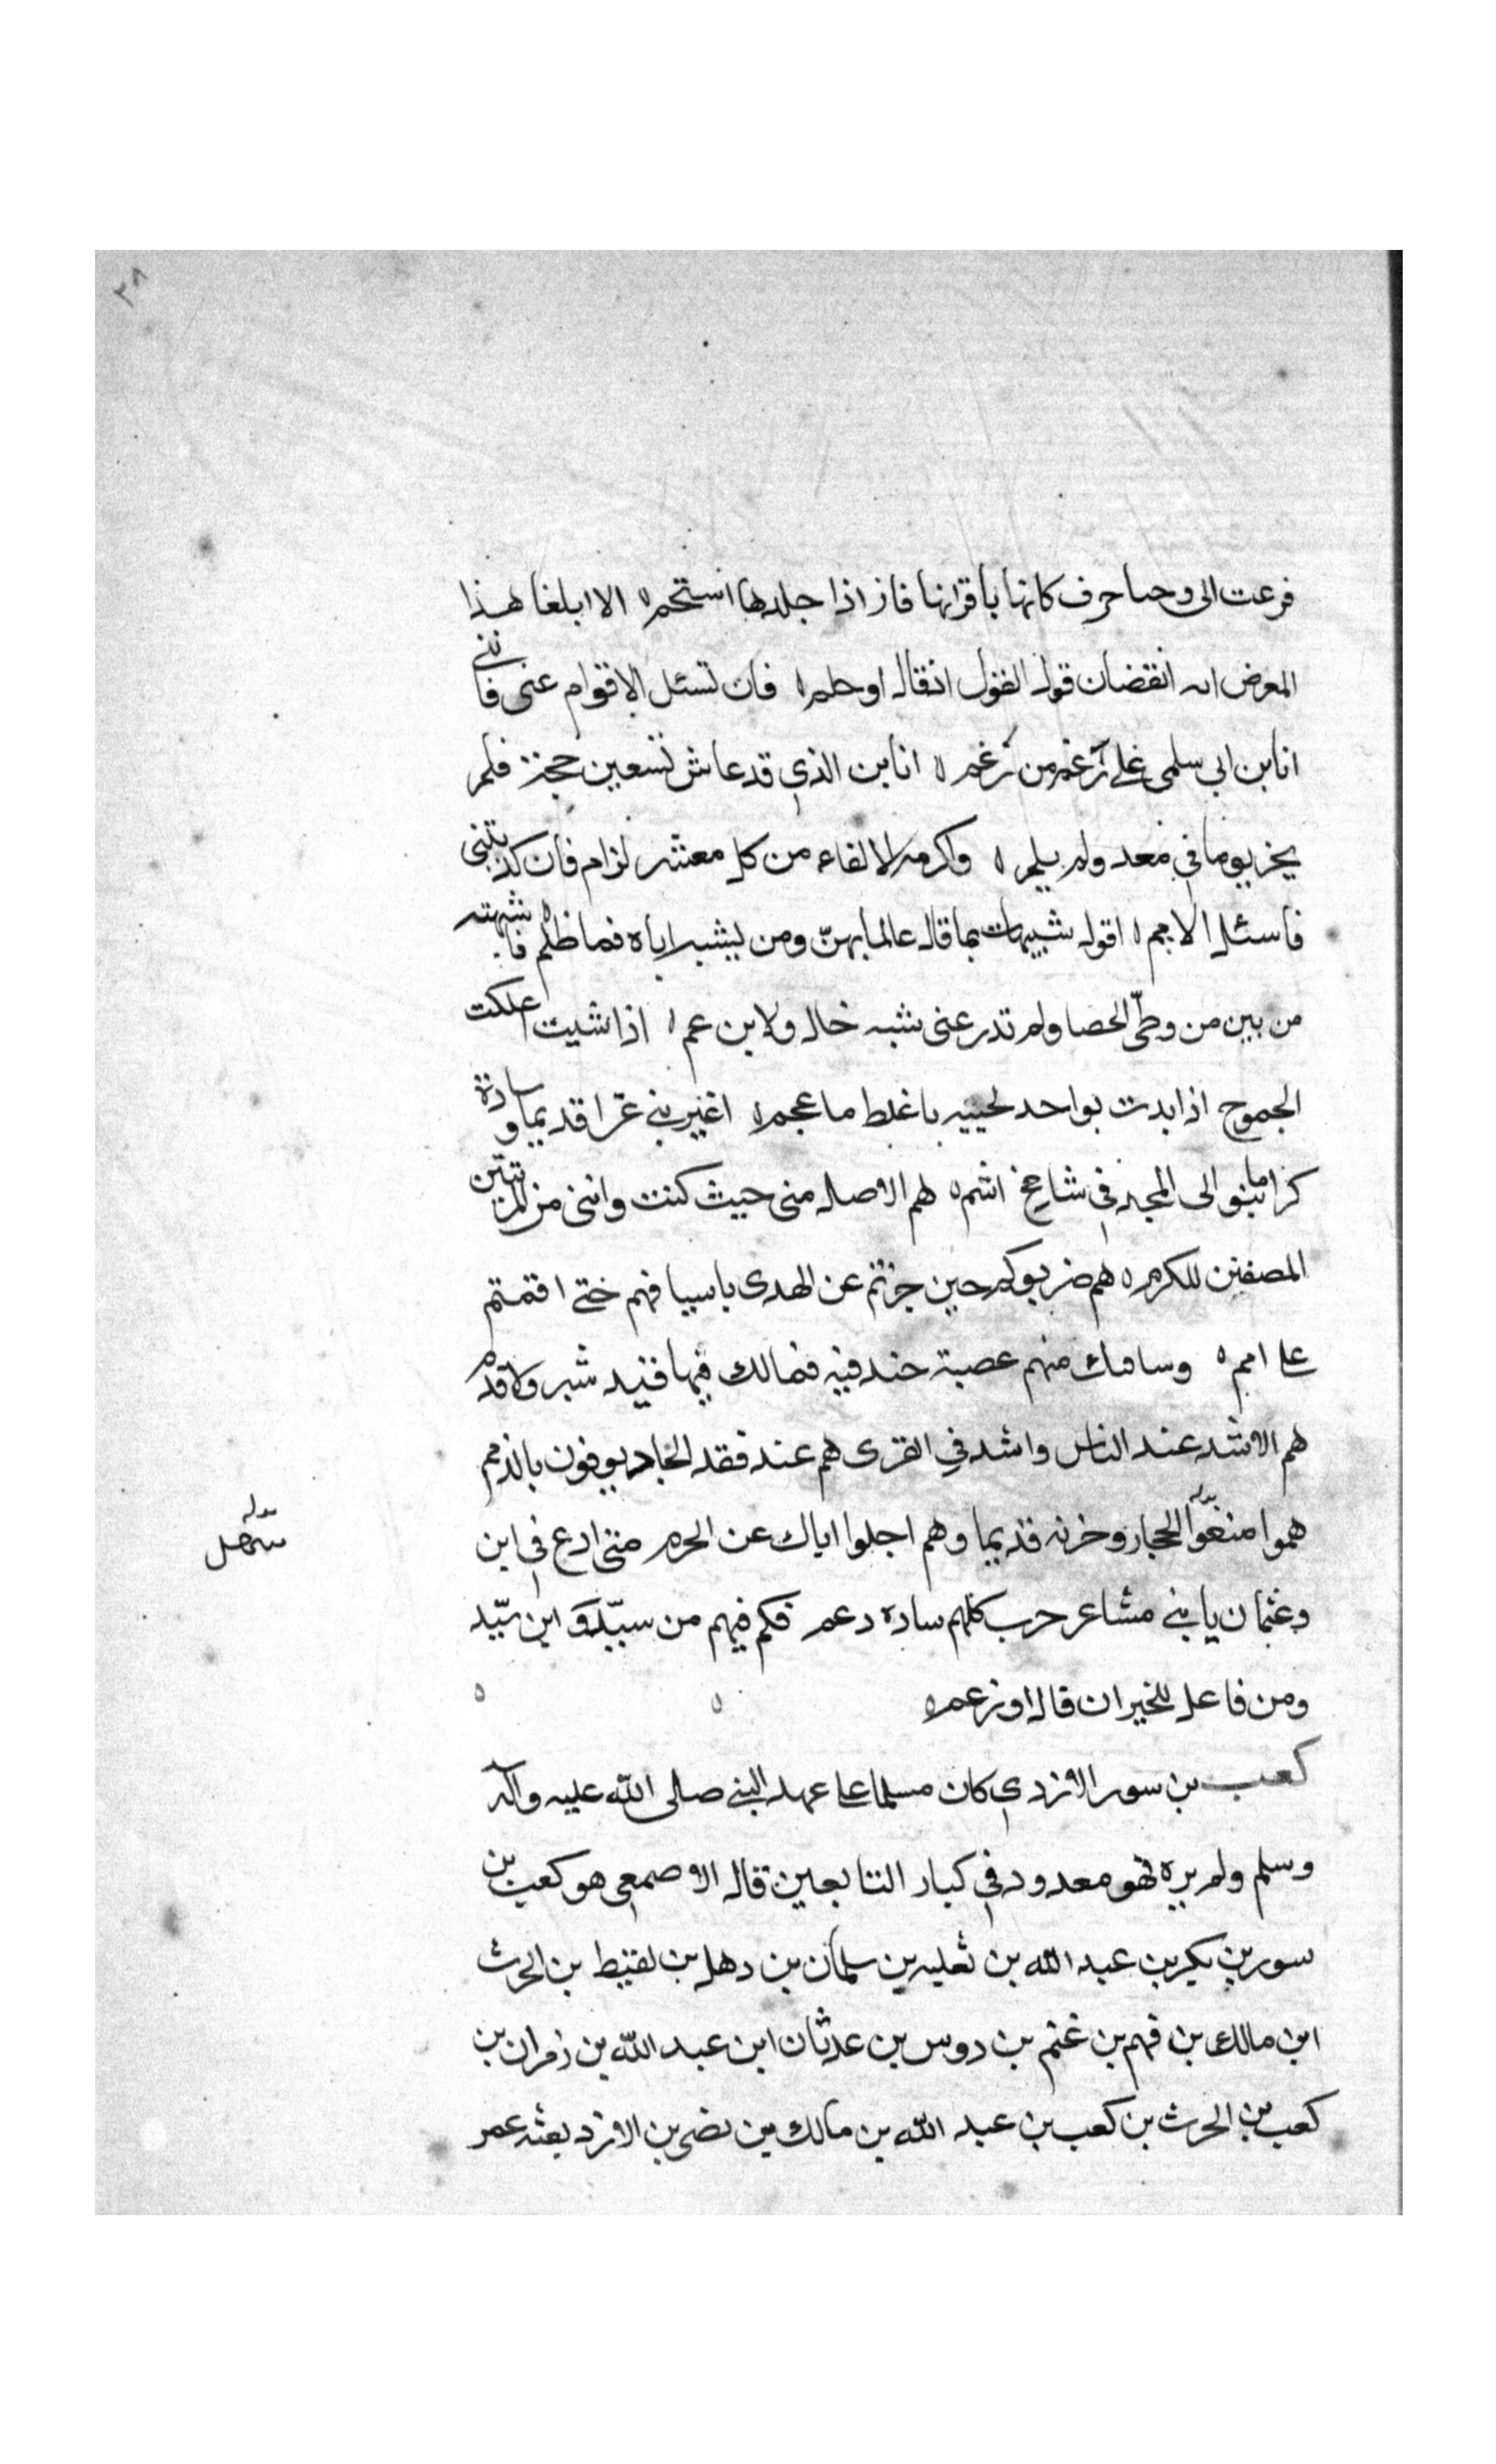 ٣٨
فرعت الى وحنا حرف كانها باقرانها فاز اذا جلدها استحم ٥ الا ابلغا هذا
المعرض انه انقضان قوله القول اذقال او حلم ٥ فان تسئل الاقوام عنى فاننى
انا بن ابى سلمى على رغم من رغم ٥ انا بن الذى قد عاش تسعين حجة فلم
يخز يوما فى معد ولم يلم ٥ واكرمه الالفاء من كل معشر لزام فان كذبتنى
فاسئل الامم ٥ اقول شبيهات بما قال عالما بهنّ ومن يشبه اباه فما ظلم فاشبهته
من بين من وطئ الحصا ولم تدر عنى شبه خال ولا بن عم ٥ اذا شيت اعلكت
الجموح اذا بدت بواحد لحييه باغلط ما عجم ٥ اغيرينى عزا قديما وسادة
كراما بنو الى المجد فى شامخ اشم ٥ هم الاصل منى حيث كنت واننى من المزنيين
المصفين للكرم ٥ هم ضربوكم حين جزتم عن الهدى باسيافهم حتى اقمتم
على امم ٥ وسامك منهم عصبة خندفيه فمالك فيها قيد شبر ولا قدم
هم الاسد عند الناس واشد فى القرى هم عند فقد الجار يوفون بالذمم
هموا منعوا الحجاز وحزنه قديما وهم اجلوا اباك عن الحرم متى ادع فى ابن
سهله
سهل
وعثمان ياتنى مشاعر حرب كلهم سادة دعم فكم فيهم من سيّد وابن سيّد
ومن فاعل للخير ان قال او زعم ٥ ٥ ٥
كعب بن سور الازدى كان مسلما على عهد النبى صلى الله عليه وآله
وسلم ولم يره فهو معدود فى كبار التابعين قال الاصمعى هو كعب بن
سور بن بكر بن عبد الله بن ثعلبه بن سلمان بن دهل بن لقيط بن الحرث
ابن مالك بن فهم بن غنم بن دوس بن عدثان ابن عبد الله بن زمران بن
كعب بن الحرث بن كعب بن عبد الله بن مالك بن نضر بن الازد بعثه عمر